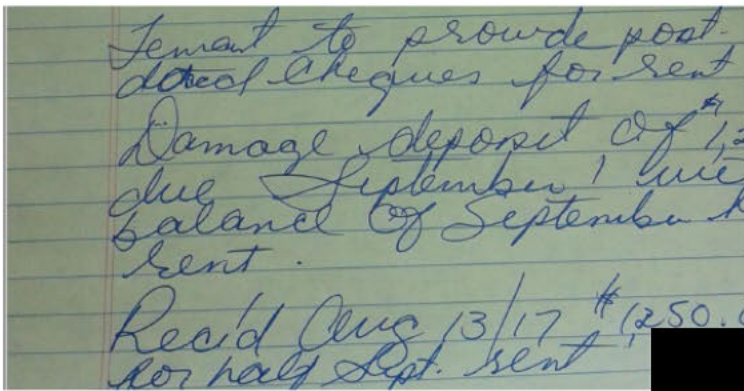 Tenant to provide post-
dated cheques for rent
Damage deposit of $1,2
due September 1 wi
balance of September
rent.
Rec'd Aug 13/17 $1,250.
for half Sept. rent